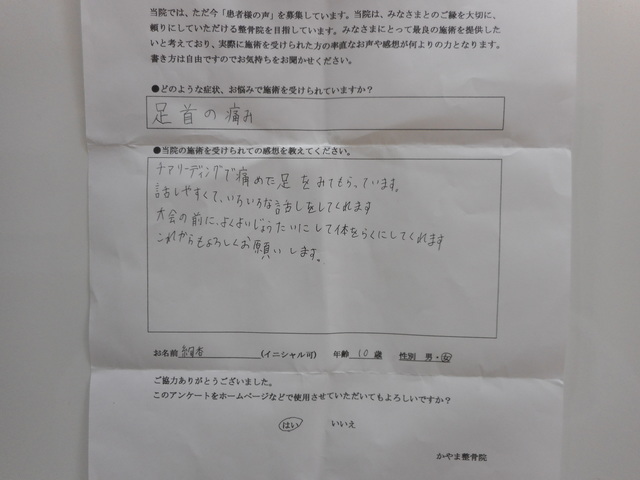 当院では、ただ今「患者様の声」を募集しています。当院は、みなさまとのご縁を大切に、
頼りにしていただける整骨院を目指しています。みなさまにとって最良の施術を提供した
いと考えており、実際に施術を受けられた方の率直なお声や感想が何よりの力となります。
書き方は自由ですのでお気持ちをお聞かせください。
●どのような症状、お悩みで施術を受けられていますか?
足首の痛み
●当院の施術を受けられての感想を教えてください。
チアリーディングで痛めた足をみてもらっています。
話しやすくて、いろいろな話しをしてくれます
大会の前に、よくよいじょうたいにして体をらくにしてくれます
これからもよろしくお願いします。
お名前 (イニシャル可) 年齢 10 歳 性別 男・女
ご協力ありがとうございました。
このアンケートをホームページなどで使用させていただいてもよろしいですか?
はい いいえ
かやま整骨院